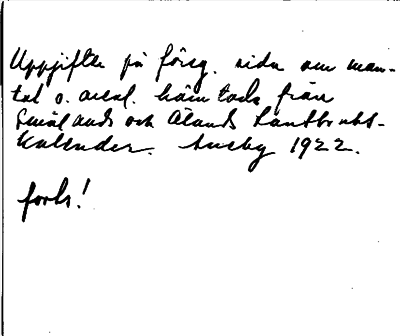 Uppgifter på föreg. sida om man-
tal o. areal. hämtade från
Smålands och Ölands Lantbruks-
Kalender. 1922.
forts!